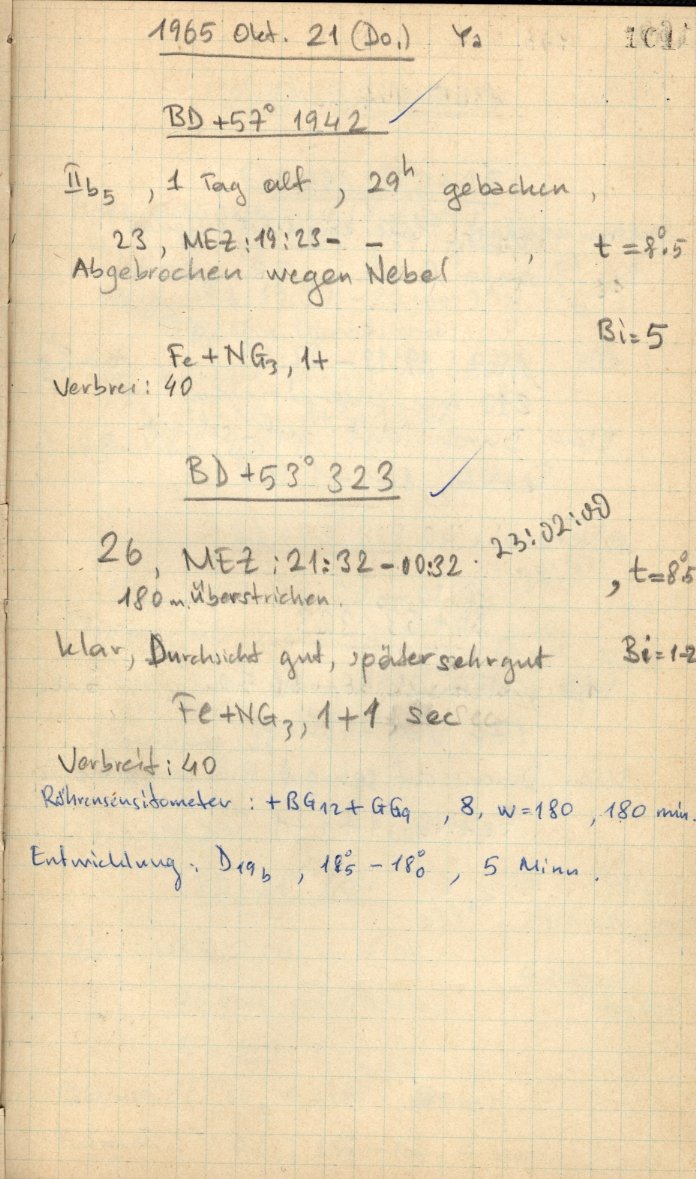 1965 Okt. 21 (Do.) Ya 101
BD +57° 1942
IIb5, 1 Tag alt, 29h gebacken,
23, MEZ: 19:23- - , t = 8°.5
Abgebrochen wegen Nebel
Bi = 5
Fe + NG3, 1+
Verbrei: 40
BD +53° 323
26, MEZ: 21:32 - 00:32 . 23:02:00
, t = 8°.5
180 m überstrichen.
klar, Durchsicht gut, später sehr gut Bi = 1-2
Fe + NG3, 1+1 sec
Verbreit: 40
Röhrensensitometer: + BG12 + GG9, 8, w = 180, 180 min.
Entwicklung: D19b, 18°5 - 18°0, 5 Minn.